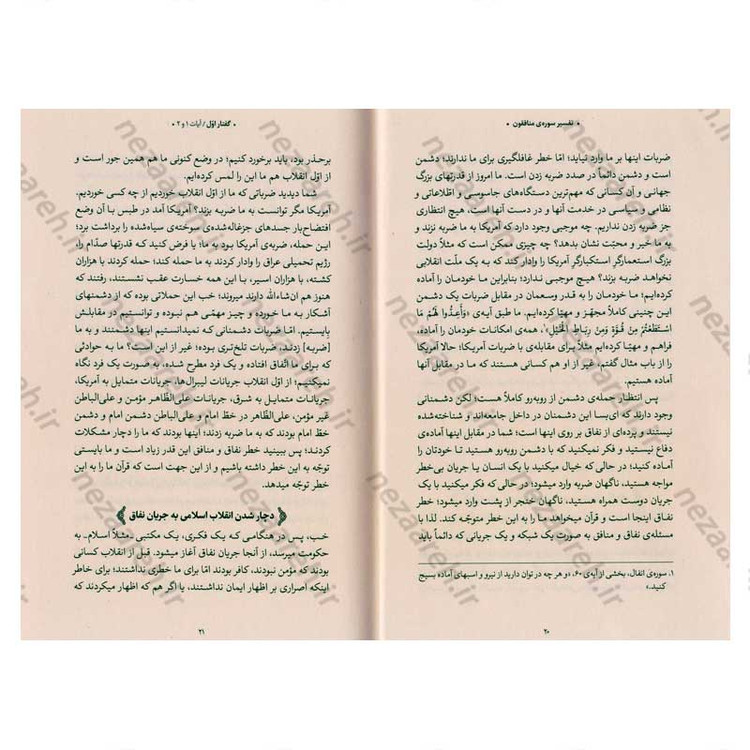 • تفسیر سوره‌ی منافقون •
ضربات اینها بر ما وارد نیاید؛ امّا خطر غافلگیری برای ما ندارند؛ دشمن
است و دشمن دائماً در صدد ضربه زدن است. ما امروز از قدرتهای بزرگ
جهانی و آن کسانی که مهم‌ترین دستگاه‌های جاسوسی و اطّلاعاتی و
نظامی و سیاسی در خدمت آنها و در دست آنها است، هیچ انتظاری
جز ضربه زدن نداریم. چه موجبی وجود دارد که آمریکا به ما ضربه نزند و
به ما خیر و محبّت نشان بدهد؟ چه چیزی ممکن است که مثلاً دولت
بزرگ استعمارگرِ استکبارگرِ آمریکا را وادار کند که به یک ملّت انقلابی
نخواهد ضربه بزند؟ هیچ موجبی ندارد؛ بنابراین ما خودمان را آماده
کرده‌ایم؛ ما خودمان را به قدر وسعمان در مقابل ضربات یک دشمن
این چنینی کاملاً مجهّز و مهیّا کرده‌ایم. ما طبق آیه‌ی «وَأَعِدُّوا لَهُم مَّا
اسْتَطَعْتُم مِّن قُوَّةٍ وَمِن رِّبَاطِ الْخَيْلِ»¹، همه‌ی امکانات خودمان را آماده،
فراهم و مهیّا کرده‌ایم مثلاً برای مقابله‌ی با ضربات آمریکا؛ حالا آمریکا
را از باب مثال گفتم، غیر از او هم کسانی هستند که ما در مقابل آنها
آماده هستیم.
پس انتظار حمله‌ی دشمن از روبه‌رو کاملاً هست؛ لکن دشمنانی
وجود دارند که ای‌بسا این دشمنان در داخل جامعه‌اند و شناخته‌شده
نیستند و پرده‌ای از نفاق بر روی اینها است؛ شما در مقابل اینها آماده‌ی
دفاع نیستید و فکر نمیکنید که با دشمن روبه‌رو هستید تا خودتان را
آماده کنید؛ در حالی که خیال میکنید با یک انسان یا جریان بی‌خطر
مواجه هستید، ناگهان ضربه وارد میشود؛ در حالی که فکر میکنید با یک
جریان دوست همراه هستید، ناگهان خنجر از پشت وارد میشود؛ خطر
نفاق اینجا است و قرآن میخواهد ما را به این خطر متوجّه کند. لذا با
مسئله‌ی نفاق و منافق به صورت یک شبکه و یک جریانی که دائماً باید
۱. سوره‌ی انفال، بخشی از آیه‌ی ۶۰، «و هر چه در توان دارید از نیرو و اسبهای آماده بسیج
کنید.»
۲۰
• گفتار اوّل / آیات ۱ و ۲ •
برحذر بود، باید برخورد کنیم؛ در وضع کنونی ما هم همین جور است و
از اوّل انقلاب هم ما این را لمس کرده‌ایم.
شما دیدید ضرباتی که ما از اوّل انقلاب خوردیم از چه کسی خوردیم.
آمریکا مگر توانست به ما ضربه بزند؟ آمریکا آمد در طبس با آن وضع
افتضاح‌بار جسدهای جزغاله‌شده‌ی سوخته‌ی سیاه‌شده را برداشت برد؛
این حمله، ضربه‌ی آمریکا بود به ما؛ یا فرض کنید که قدرتها صدّام را،
رژیم تحمیلی عراق را وادار کردند به ما حمله کند؛ حمله کردند با هزاران
کشته، با هزاران اسیر، با این همه خسارت عقب نشستند، رفتند که
هنوز هم ان‌شاءالله دارند میروند؛ خب این حملاتی بوده که از دشمنهای
آشکار به ما خورده و چیز مهمّی هم نبوده و توانستیم در مقابلش
بِایستیم. امّا ضربات دشمنانی که نمیدانستیم اینها دشمنند و به ما
[ضربه] زدند، ضربات تلخ‌تری بود؛ غیر از این است؟ ما به حوادثی
که برای ما اتّفاق افتاده و فرد مطرح شده، به صورت یک فرد نگاه
نمیکنیم؛ از اوّل انقلاب جریانات لیبرال‌ها، جریانات متمایل به آمریکا،
جریانات متمایل به شرق، جریانات علی‌الظّاهر مؤمن و علی‌الباطن
غیر مؤمن، علی‌الظّاهر در خطّ امام و علی‌الباطن دشمن امام و دشمن
خطّ امام بودند که به ما ضربه زدند؛ اینها بودند که ما را دچار مشکلات
کردند؛ پس ببینید خطر نفاق و منافق این قدر زیاد است و ما بایستی
توجّه به این خطر داشته باشیم و از این جهت است که قرآن ما را به این
خطر توجّه میدهد.
دچار شدن انقلاب اسلامی به جریان نفاق
خب، پس در هنگامی که یک فکری، یک مکتبی ـ مثلاً اسلام ـ به
حکومت میرسد، از آنجا جریان نفاق آغاز میشود. قبل از انقلاب کسانی
بودند که مؤمن نبودند، کافر بودند امّا برای ما خطری نداشتند؛ برای خاطر
اینکه اصراری بر اظهار ایمان نداشتند، یا اگر هم که اظهار میکردند که
۲۱
nezaareh.ir